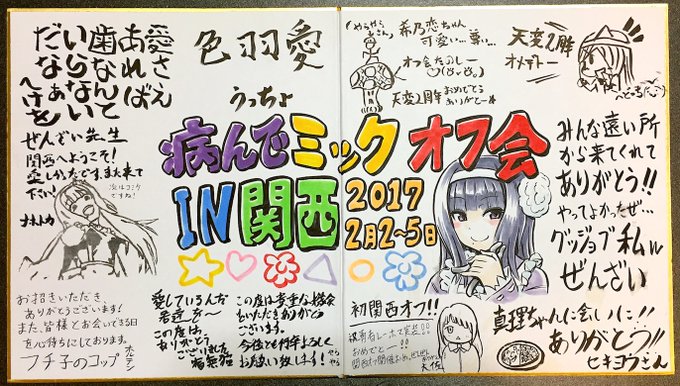 愛さ
えあれば
歯なんて
いらない
だなぁ
へけを
ぜんざい先生
関西へようこそ!
愛しかったです、また来て
下さい!
次はコミケ
ですね!
ナオトカ
お招きいただき、
ありがとうございます!
また、皆様とお会いできる日
を心待ちにしております。
フチ子のコップ
ホルテン
色羽愛
うっちょ
病んでミックオフ会
IN関西
2017
2月2~5日
愛しているんだ
君達を~
この度は、
ありがとう
ございました
この度は貴重な機会
をいただきありがとう
ございます。
今後とも何卒よろしく
お願い致します!
やらやら
やらやら
さん
希乃恋ちゃん
可愛い…尊い…
オフ会たのしー
天変2周年おめでとう
ありがとーぬ
天変2周年
オメデトー
みんな遠い所
から来てくれて
ありがとう!!
やってよかったぜ…
グッジョブ私ル
ぜんざい
初関西オフ!!
おめでとー!!
真理ちゃんに会いに!!
ありがとう!!
ヒキヨウさん